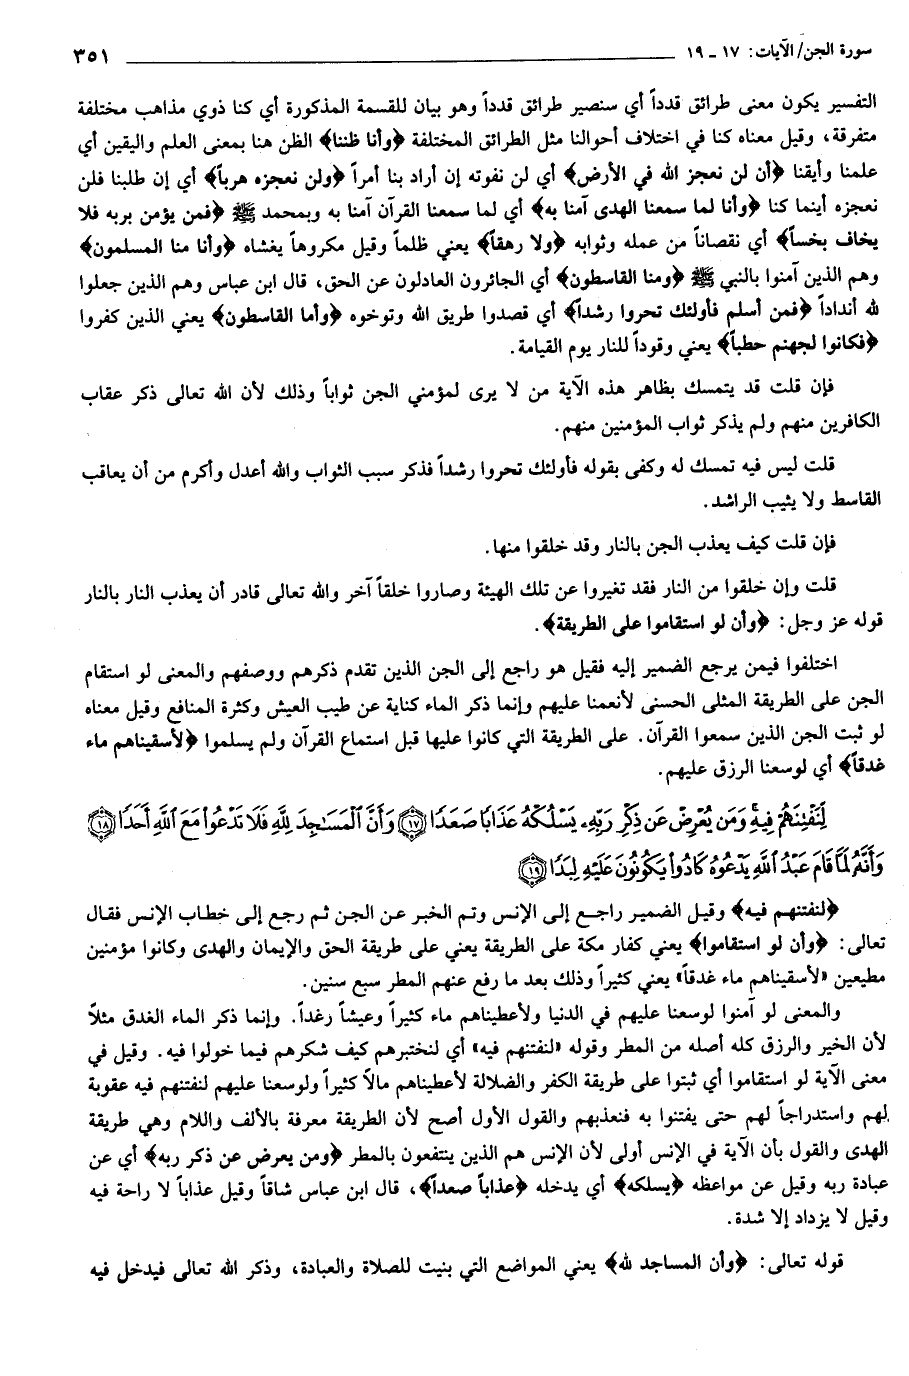 سورة الجن/ الآيات: ١٧ ـ ١٩ ٣٥١
التفسير يكون معنى طرائق قدداً أي سنصير طرائق قدداً وهو بيان للقسمة المذكورة أي كنا ذوي مذاهب مختلفة
متفرقة، وقيل معناه كنا في اختلاف أحوالنا مثل الطرائق المختلفة ﴿وأنا ظننا﴾ الظن هنا بمعنى العلم واليقين أي
علمنا وأيقنا ﴿أن لن نعجز الله في الأرض﴾ أي لن نفوته إن أراد بنا أمراً ﴿ولن نعجزه هرباً﴾ أي إن طلبنا فلن
نعجزه أينما كنا ﴿وأنا لما سمعنا الهدى آمنا به﴾ أي لما سمعنا القرآن آمنا به وبمحمد ﷺ ﴿فمن يؤمن بربه فلا
يخاف بخساً﴾ أي نقصاناً من عمله وثوابه ﴿ولا رهقاً﴾ يعني ظلماً وقيل مكروهاً يغشاه ﴿وأنا منا المسلمون﴾
وهم الذين آمنوا بالنبي ﷺ ﴿ومنا القاسطون﴾ أي الجائرون العادلون عن الحق، قال ابن عباس وهم الذين جعلوا
لله أنداداً ﴿فمن أسلم فأولئك تحروا رشداً﴾ أي قصدوا طريق الله وتوخوه ﴿وأما القاسطون﴾ يعني الذين كفروا
﴿فكانوا لجهنم حطباً﴾ يعني وقوداً للنار يوم القيامة.
فإن قلت قد يتمسك بظاهر هذه الآية من لا يرى لمؤمني الجن ثواباً وذلك لأن الله تعالى ذكر عقاب
الكافرين منهم ولم يذكر ثواب المؤمنين منهم.
قلت ليس فيه تمسك له وكفى بقوله فأولئك تحروا رشداً فذكر سبب الثواب والله أعدل وأكرم من أن يعاقب
القاسط ولا يثيب الراشد.
فإن قلت كيف يعذب الجن بالنار وقد خلقوا منها.
قلت وإن خلقوا من النار فقد تغيروا عن تلك الهيئة وصاروا خلقاً آخر والله تعالى قادر أن يعذب النار بالنار
قوله عز وجل: ﴿وأن لو استقاموا على الطريقة﴾.
اختلفوا فيمن يرجع الضمير إليه فقيل هو راجع إلى الجن الذين تقدم ذكرهم ووصفهم والمعنى لو استقام
الجن على الطريقة المثلى الحسنى لأنعمنا عليهم وإنما ذكر الماء كناية عن طيب العيش وكثرة المنافع وقيل معناه
لو ثبت الجن الذين سمعوا القرآن. على الطريقة التي كانوا عليها قبل استماع القرآن ولم يسلموا ﴿لأسقيناهم ماء
غدقاً﴾ أي لوسعنا الرزق عليهم.
لِنَفْتِنَهُمْ فِيهِ وَمَن يُعْرِضْ عَن ذِكْرِ رَبِّهِۦ يَسْلُكْهُ عَذَابًا صَعَدًا ﴿١٧﴾ وَأَنَّ ٱلْمَسَٰجِدَ لِلَّهِ فَلَا تَدْعُوا۟ مَعَ ٱللَّهِ أَحَدًا ﴿١٨﴾
وَأَنَّهُ لَمَّا قَامَ عَبْدُ ٱللَّهِ يَدْعُوهُ كَادُوا۟ يَكُونُونَ عَلَيْهِ لِبَدًا ﴿١٩﴾
﴿لنفتنهم فيه﴾ وقيل الضمير راجع إلى الإنس وتم الخبر عن الجن ثم رجع إلى خطاب الإنس فقال
تعالى: ﴿وأن لو استقاموا﴾ يعني كفار مكة على الطريقة يعني على طريقة الحق والإيمان والهدى وكانوا مؤمنين
مطيعين «لأسقيناهم ماء غدقاً» يعني كثيراً وذلك بعد ما رفع عنهم المطر سبع سنين.
والمعنى لو آمنوا لوسعنا عليهم في الدنيا ولأعطيناهم ماء كثيراً وعيشاً رغداً. وإنما ذكر الماء الغدق مثلاً
لأن الخير والرزق كله أصله من المطر وقوله «لنفتنهم فيه» أي لنختبرهم كيف شكرهم فيما خولوا فيه. وقيل في
معنى الآية لو استقاموا أي ثبتوا على طريقة الكفر والضلالة لأعطيناهم مالاً كثيراً ولوسعنا عليهم لنفتنهم فيه عقوبة
لهم واستدراجاً لهم حتى يفتنوا به فنعذبهم والقول الأول أصح لأن الطريقة معرفة بالألف واللام وهي طريقة
الهدى والقول بأن الآية في الإنس أولى لأن الإنس هم الذين ينتفعون بالمطر ﴿ومن يعرض عن ذكر ربه﴾ أي عن
عبادة ربه وقيل عن مواعظه ﴿يسلكه﴾ أي يدخله ﴿عذاباً صعداً﴾، قال ابن عباس شاقاً وقيل عذاباً لا راحة فيه
وقيل لا يزداد إلا شدة.
قوله تعالى: ﴿وأن المساجد لله﴾ يعني المواضع التي بنيت للصلاة والعبادة، وذكر الله تعالى فيدخل فيه